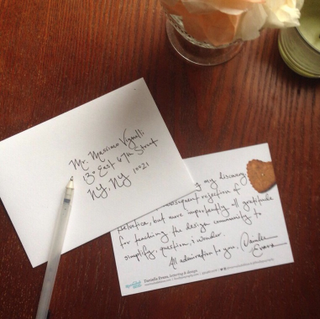 Mr. Massimo Vignelli
130 East 67th Street
NY, NY 10021
my discovery
subsequent rejection of
Helvetica, but more importantly, all gratitude
for teaching the design community to
simplify, question, & wonder.
All admiration to you,
Danielle
Evans